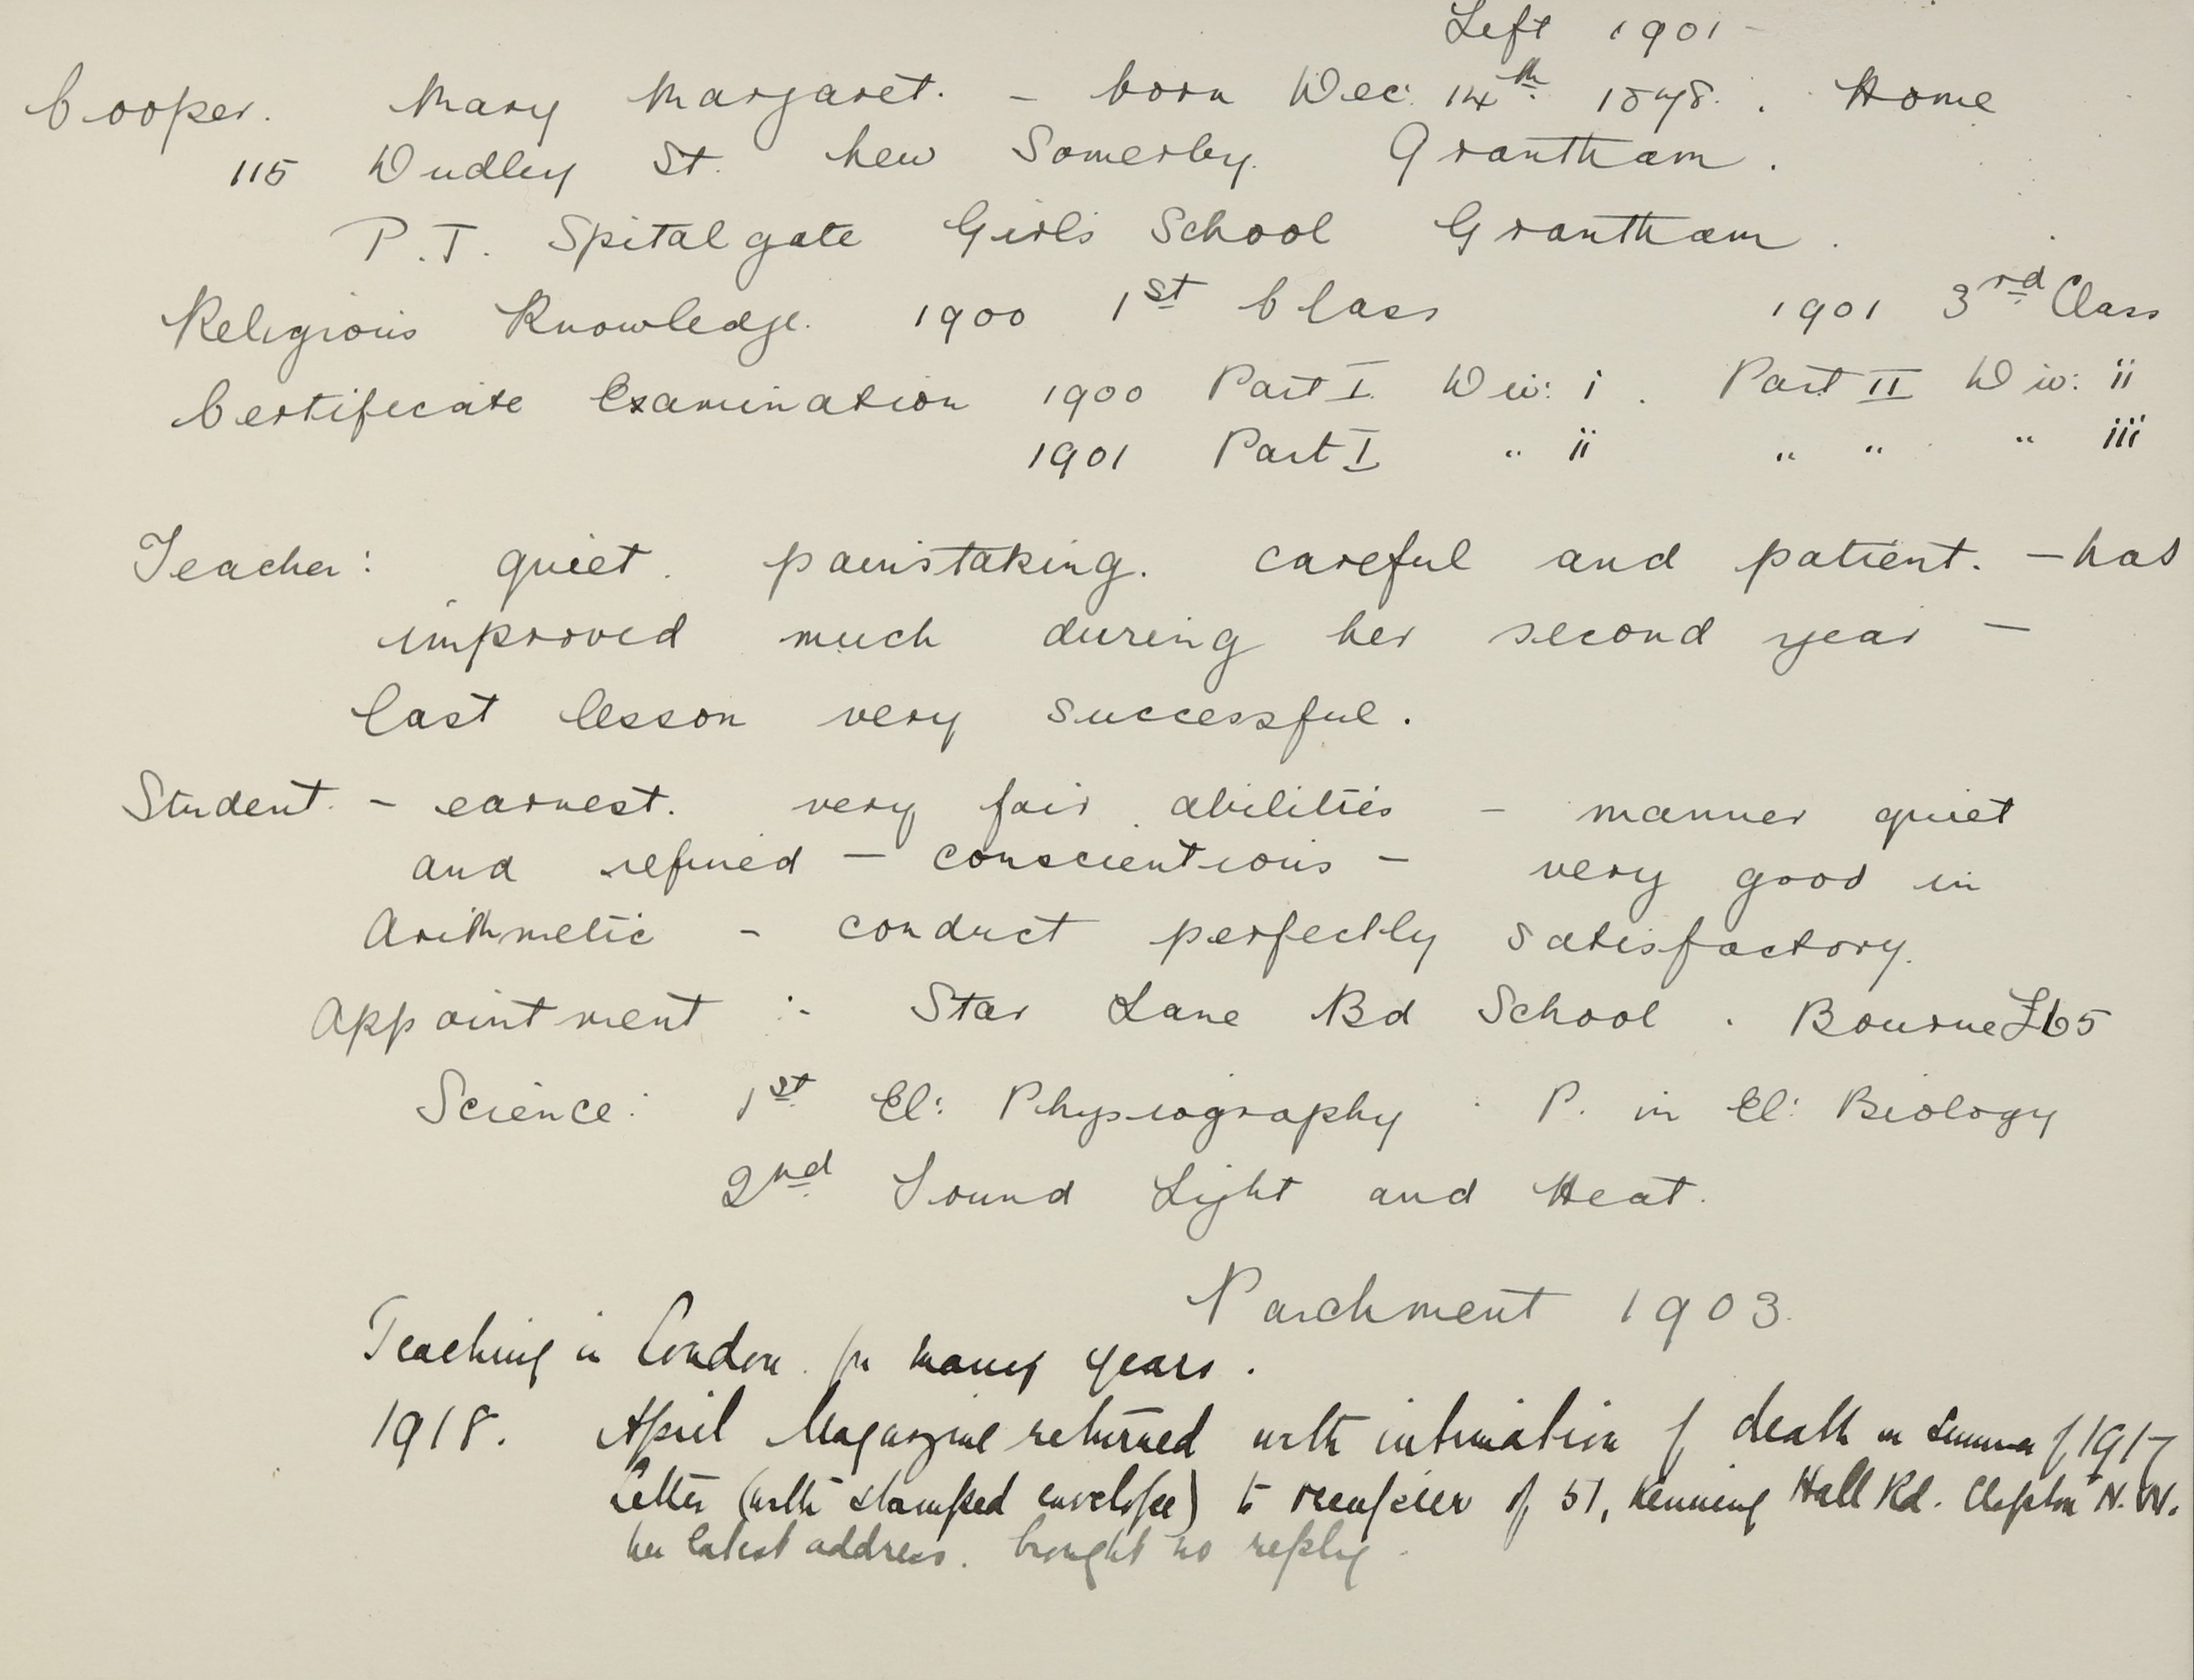 Left 1901 -
Cooper. Mary Margaret. - born Dec: 14th 1878. . Home
115 Dudley St. New Somerby. Grantham.
P.T. Spitalgate Girls School Grantham.
Religious Knowledge. 1900 1st Class 1901 3rd Class
Certificate Examination 1900 Part I. Div: i . Part II Div: ii
1901 Part I " ii " " " iii
Teacher: quiet. painstaking. careful and patient. - has
improved much during her second year -
last lesson very successful.
Student. - earnest. very fair abilities - manner quiet
and refined - conscientious - very good in
Arithmetic - conduct perfectly satisfactory.
Appointment :- Star Lane Bd School . Bourne £65
Science: 1st El: Physiography . P. in El: Biology
2nd Sound Light and Heat.
Parchment 1903.
Teaching in London for many years.
1918. April Magazine returned with intimation of death in summer of 1917
Letter (with stamped envelope) to occupier of 51, Kenning Hall Rd. Clapton N.W.
her latest address. brought no reply.